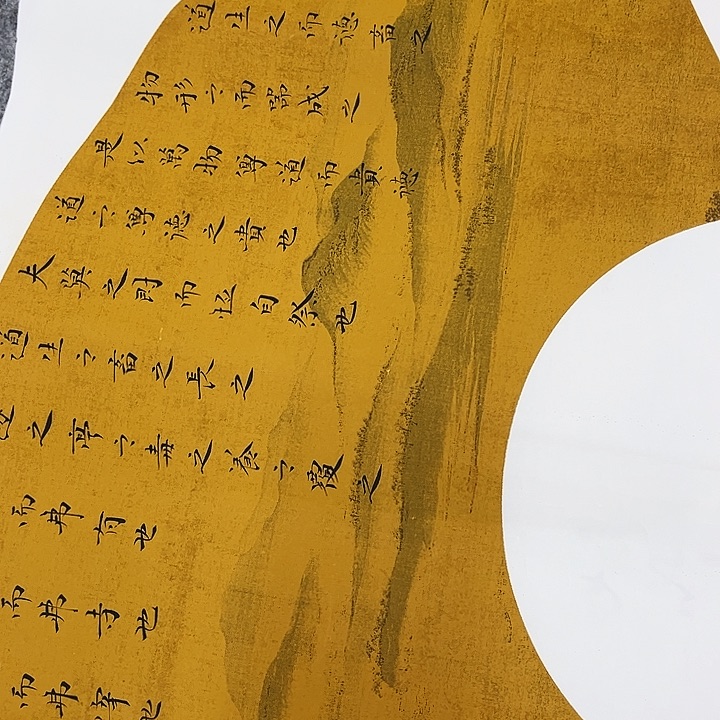 道生之而德畜之
物形之而器成之
是以萬物尊道而貴德
道之尊德之貴也
夫莫之而恒自也
道生之畜之長之
之亭之毒之養之覆之
而弗有也
而弗寺也
而弗宰也